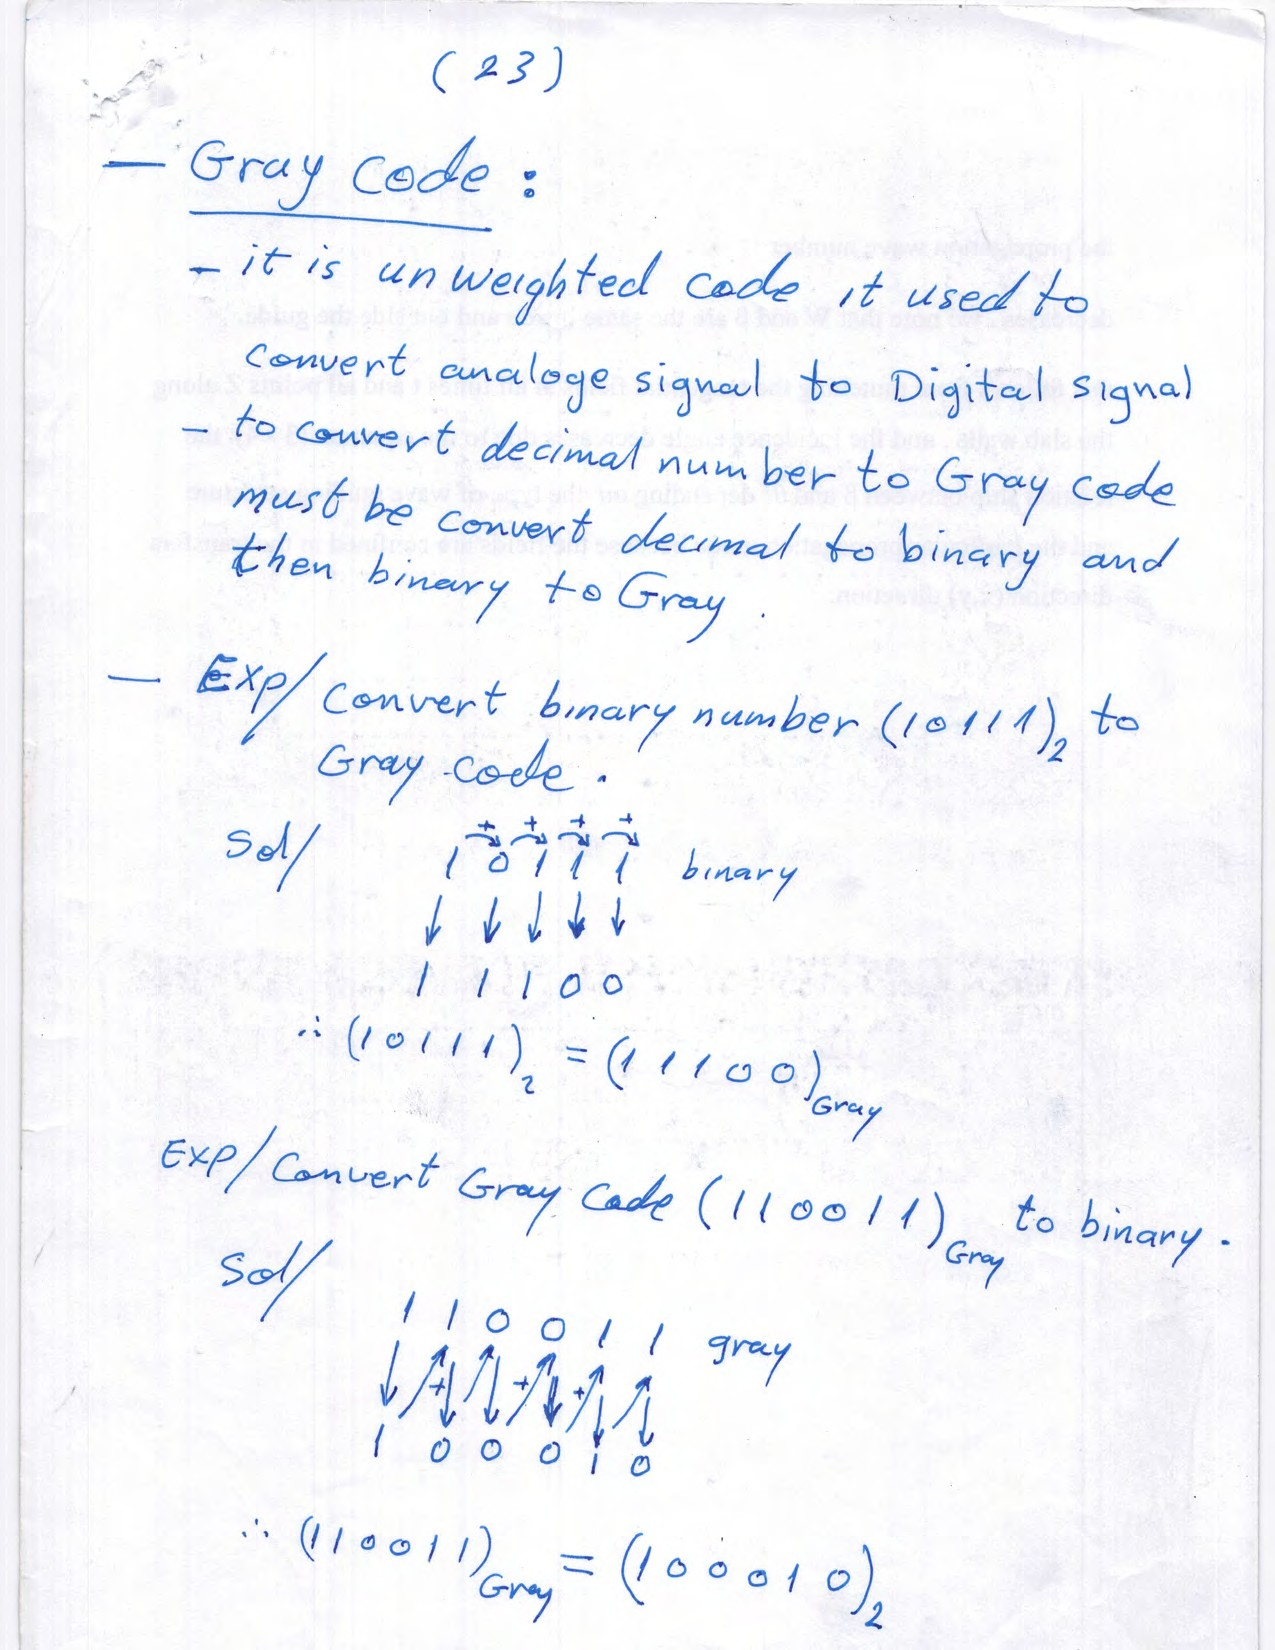 (23)
— Gray Code :
- it is unweighted code it used to
convert analoge signal to Digital signal
- to convert decimal number to Gray code
must be convert decimal to binary and
then binary to Gray .
— Exp/ Convert binary number (10111)2 to
Gray code .
Sol/
+ + + +
1 0 1 1 1 binary
↓ ↓ ↓ ↓ ↓
1 1 1 0 0
∴ (10111)2 = (11100)Gray
Exp/ Convert Gray Code (110011)Gray to binary .
Sol/
1 1 0 0 1 1 gray
+ + +
1 0 0 0 1 0
∴ (110011)Gray = (100010)2